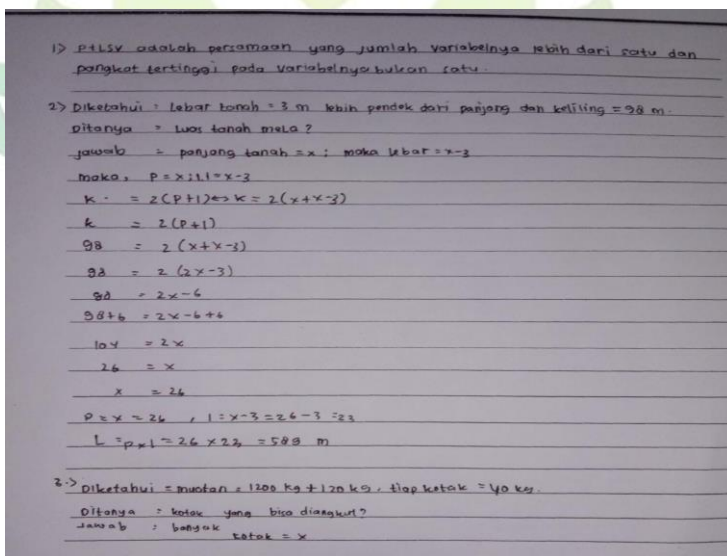 1> PtLSV adalah persamaan yang jumlah variabelnya lebih dari satu dan
pangkat tertinggi pada variabelnya bukan satu.
2> Diketahui : Lebar tanah = 3 m lebih pendek dari panjang dan keliling = 98 m.
Ditanya = Luas tanah mela ?
jawab = panjang tanah = x ; maka lebar = x-3
maka, P = x ; l = x-3
K. = 2(P+l) ↔ K = 2(x+x-3)
k = 2(P+l)
98 = 2(x+x-3)
98 = 2(2x-3)
98 = 2x-6
98+6 = 2x-6+6
104 = 2x
26 = x
x = 26
P = x = 26 , l = x-3 = 26-3 = 23
L = p×l = 26 × 23 = 589 m
3.> Diketahui = muatan = 1200 kg + 120 kg, tiap kotak = 40 kg.
Ditanya : kotak yang bisa diangkut?
Jawab : banyak
kotak = x